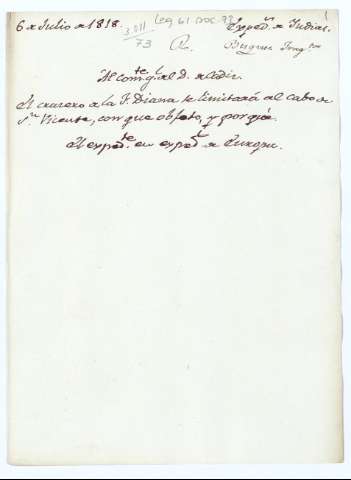 6 de Julio de 1818.
Leg 61 Doc 93
3.011
73
Exped.s de Indias
1
Buques
Al com.te g.al D. de Cadiz.
El crucero de la F. Diana se limitará al cabo de
S.n Vicente, con que objeto, y porqué.
El exped.te en exped.s de Europa.